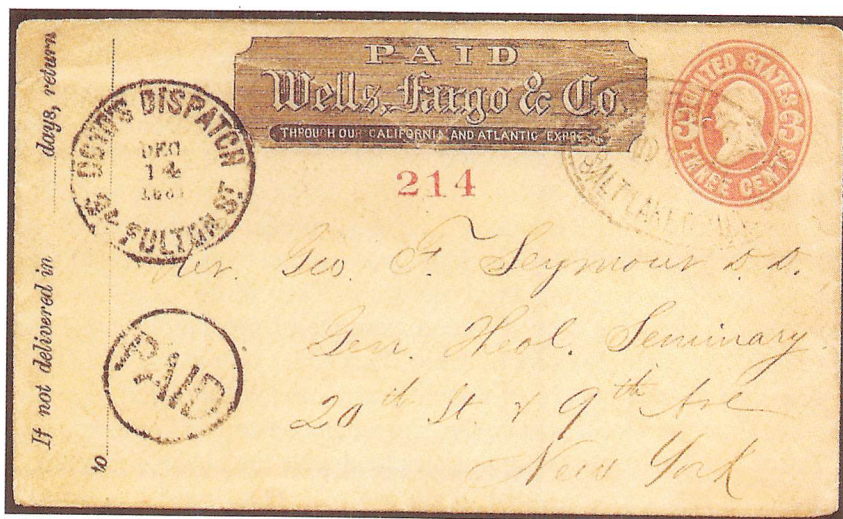 If not delivered in days, return
to
PAID
Wells, Fargo & Co
THROUGH OUR CALIFORNIA AND ATLANTIC EXPRESS
UNITED STATES
3 3
THREE CENTS
DISPATCH
DEC
14
FULTON ST.
SALT LAKE
214
PAID
Rev. Geo. F. Seymour D.D.
Gen. Theol. Seminary.
20th St. & 9th Ave
New York